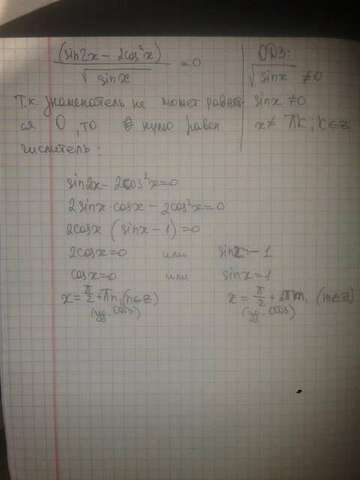 (sin2x - 2cos²x) / √sinx = 0
ОДЗ:
√sinx ≠ 0
sinx ≠ 0
x ≠ πk; k∈z
Т.к знаменатель не может равнят
ся 0, то нулю равен
числитель:
sin2x - 2cos²x=0
2sinx cosx - 2cos²x=0
2cosx (sinx - 1)=0
2cosx=0 или sinx - 1
cosx=0 или sinx=1
x = π/2 + πn, (n∈z) x = π/2 + 2πn, (n∈z)
(уд. ОДЗ) (уд. ОДЗ)